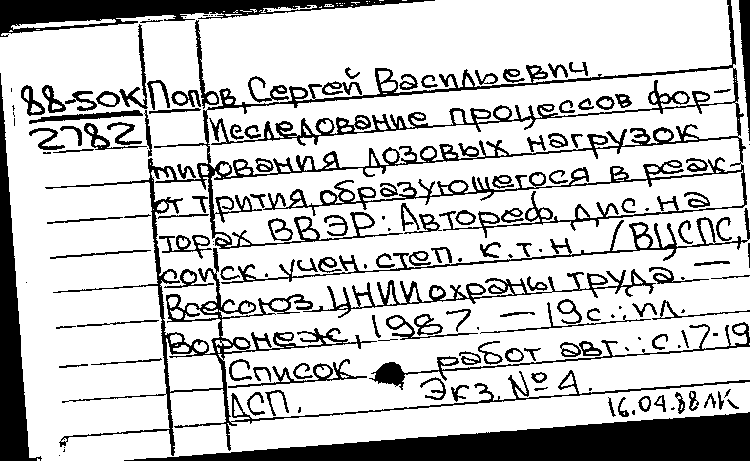 88-50К Попов, Сергей Васильевич.
2782 Исследование процессов фор-
мирования дозовых нагрузок
от трития, образующегося в реак-
торах ВВЭР: Автореф. дис. на
соиск. учен. степ. к.т.н. /ВЦСПС,
Всесоюз. ЦНИИ охраны труда. —
Воронеж, 1987. — 19с.: ил.
Список работ авт.: с.17-19
ДСП. Экз. № 4.
16.04.88 лк